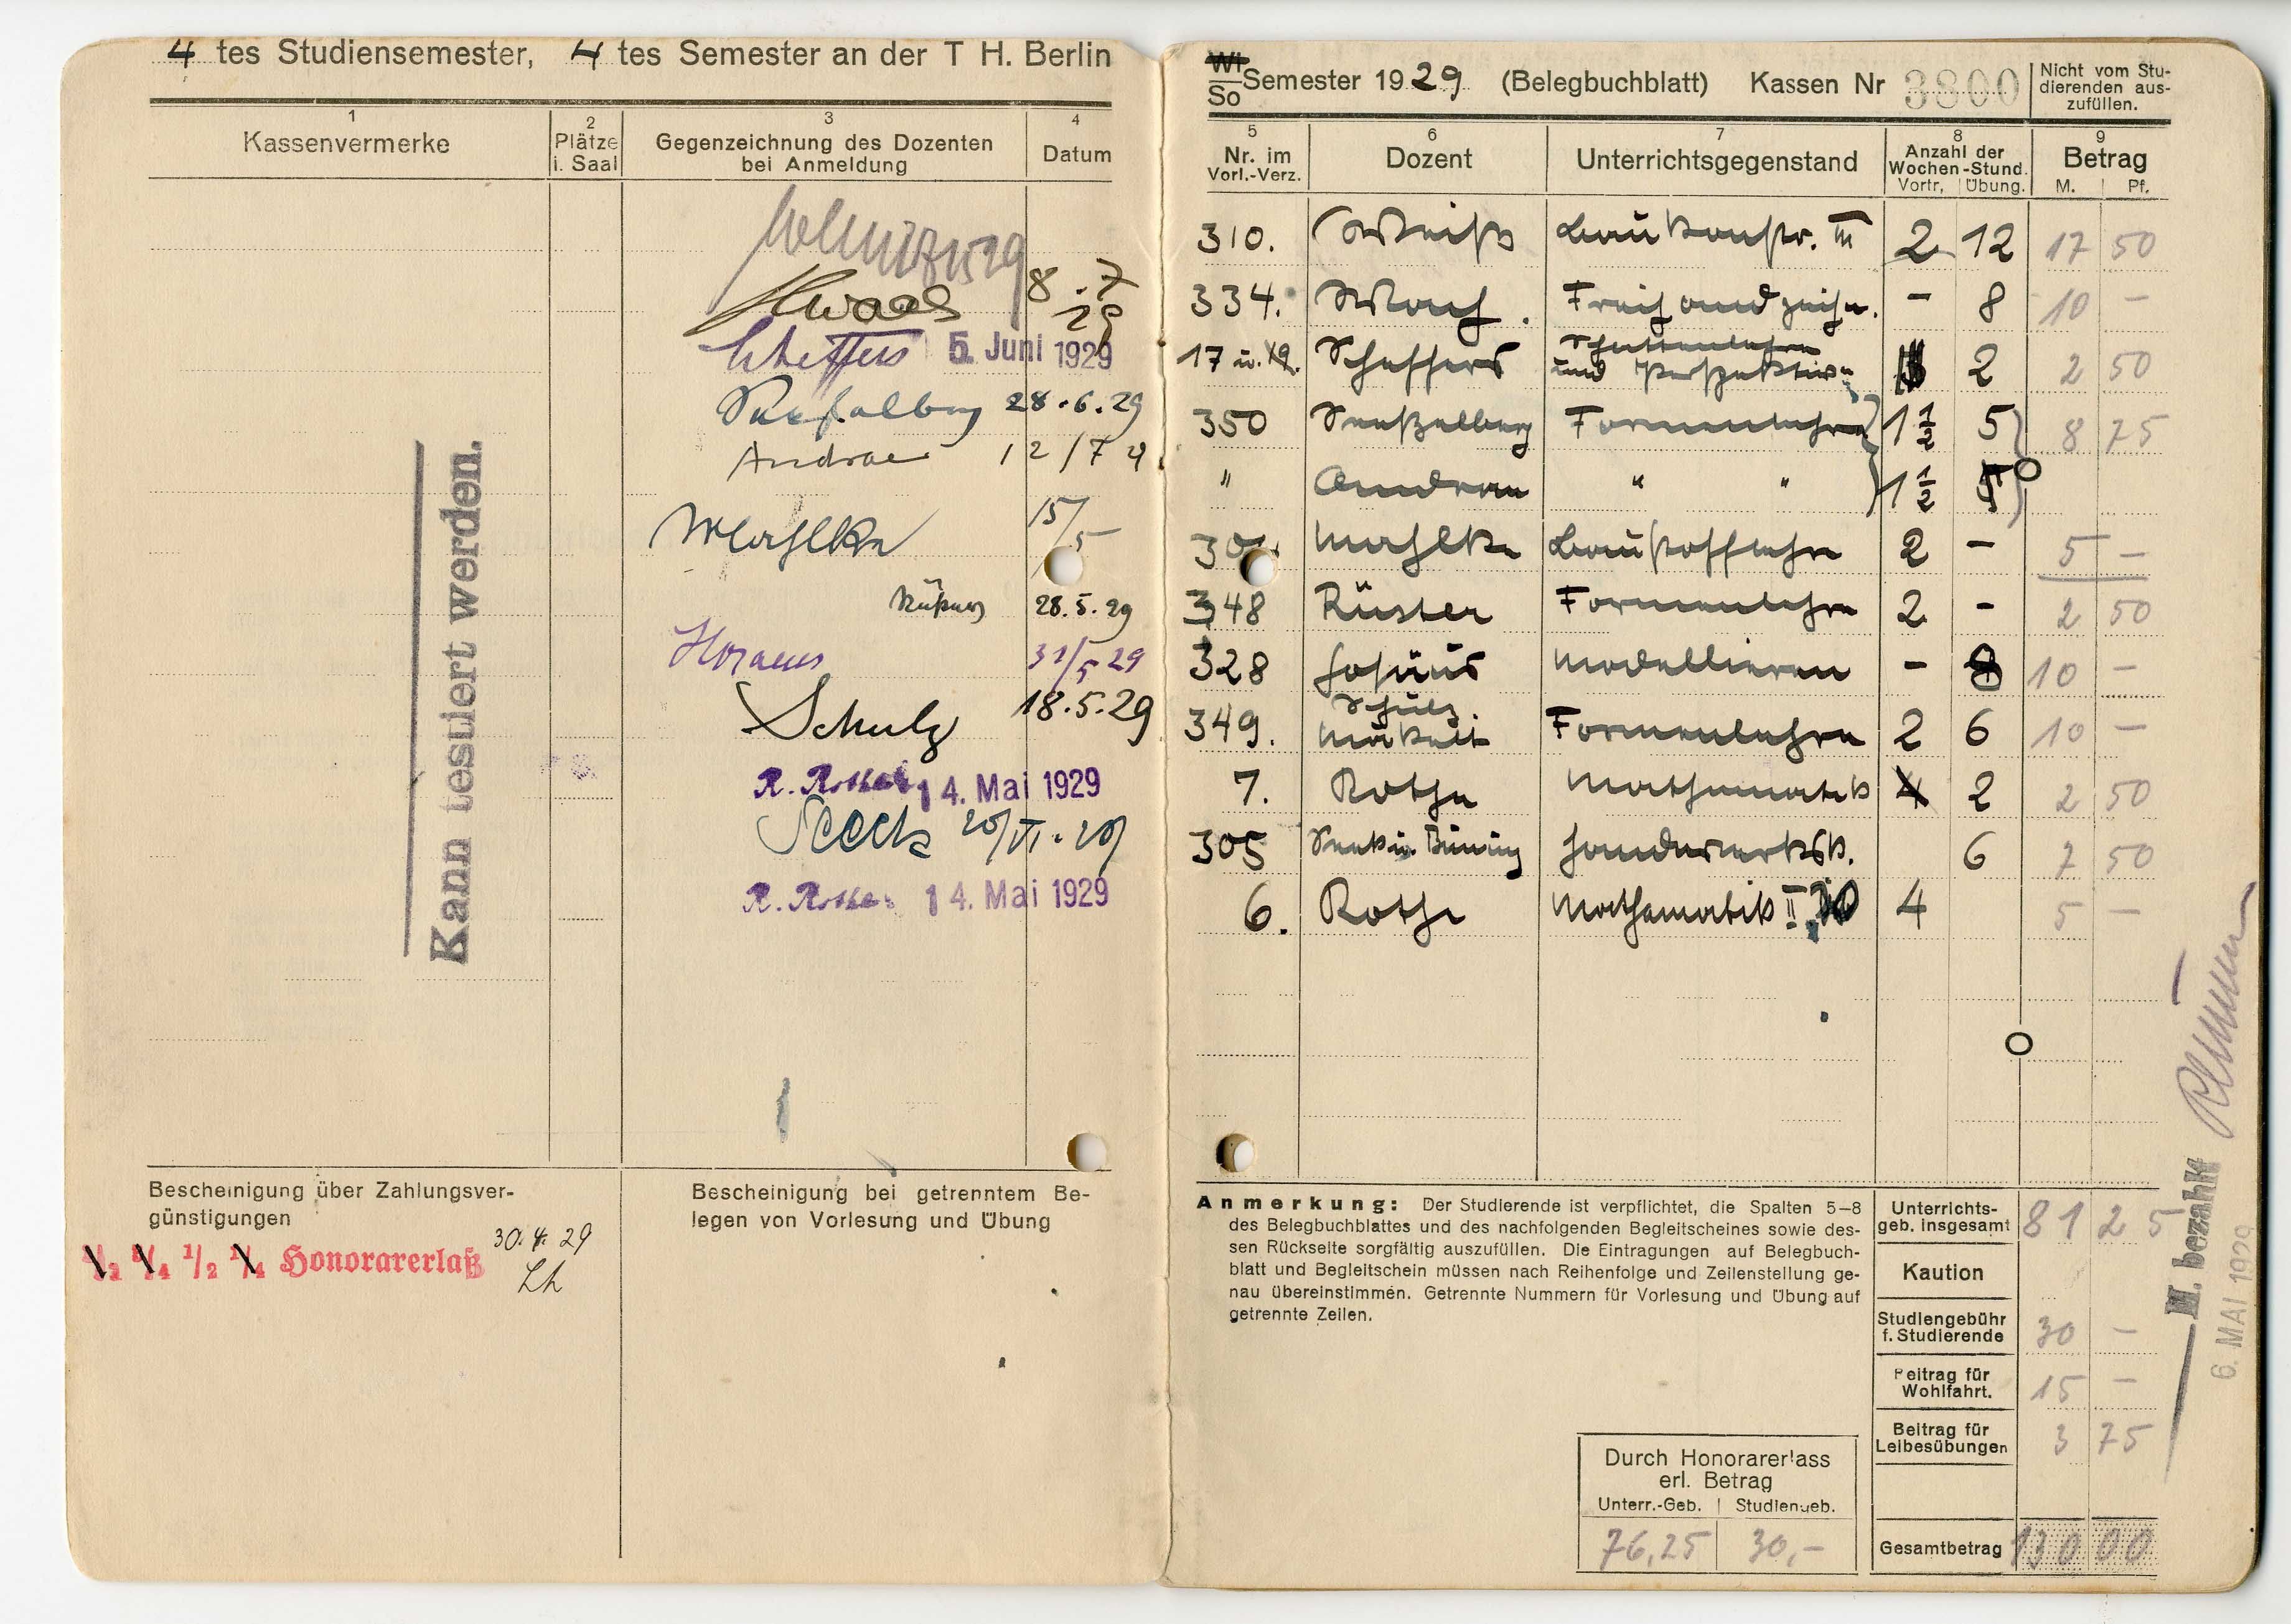 4 tes Studiensemester, 4 tes Semester an der T H. Berlin
1 2 3 4
Kassenvermerke Plätze i. Saal Gegenzeichnung des Dozenten bei Anmeldung Datum
8.7 29
5. Juni 1929
28.6.29
Andrae 12/7
Mahlke 15/5
28.5.29
31/5 29
Schulz 18.5.29
R. Rothe 14. Mai 1929
Seeck
R. Rothe 14. Mai 1929
Kann testiert werden.
Bescheinigung über Zahlungsver-
günstigungen
1/2 Honorarerlaß 30.4.29
Bescheinigung bei getrenntem Be-
legen von Vorlesung und Übung
Wi
So Semester 1929 (Belegbuchblatt) Kassen Nr 3800
Nicht vom Stu-
dierenden aus-
zufüllen.
5 6 7 8 9
Nr. im Vorl.-Verz. Dozent Unterrichtsgegenstand Anzahl der Wochen-Stund. Betrag
Vortr. Übung. M. Pf.
310. Weiß Baukonstr. III 2 12 17 50
334. Freihandzeichn. - 8 10 -
17 u. 19. Scheffers Schattenlehre und Perspektive 2 2 50
350 Seeßelberg Formenlehre 1 1/2 5 8 75
" Andrae " " 1 1/2
Mahlke Baustofflehre 2 - 5 -
348 Rüster Formenlehre 2 - 2 50
328 Hosäus Modellieren - 8 10 -
349. Schulz Formenlehre 2 6 10 -
7. Rothe Mathematik 4 2 2 50
305 Seeck u. Büning 6 7 50
6. Rothe Mathematik II 4 5 -
Anmerkung: Der Studierende ist verpflichtet, die Spalten 5–8
des Belegbuchblattes und des nachfolgenden Begleitscheines sowie des-
sen Rückseite sorgfältig auszufüllen. Die Eintragungen auf Belegbuch-
blatt und Begleitschein müssen nach Reihenfolge und Zeilenstellung ge-
nau übereinstimmen. Getrennte Nummern für Vorlesung und Übung auf
getrennte Zeilen.
Unterrichts-
geb. insgesamt 81 25
Kaution
Studiengebühr
f. Studierende 30 -
Beitrag für
Wohlfahrt. 15 -
Beitrag für
Leibesübungen 3 75
Gesamtbetrag 130 00
Durch Honorarerlass
erl. Betrag
Unterr.-Geb. | Studiengeb.
76,25 30,-
M. bezahlt
6. MAI 1929